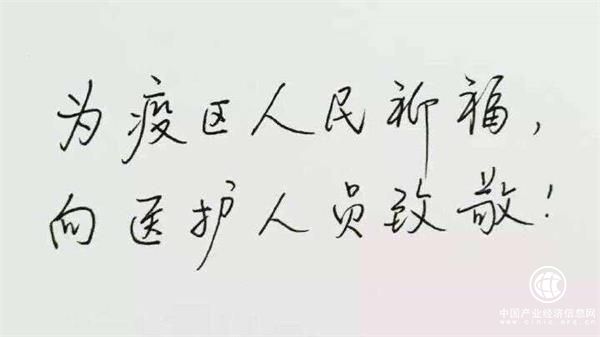 为疫区人民祈福，
向医护人员致敬！
中国产业经济信息网
www.cinic.org.cn